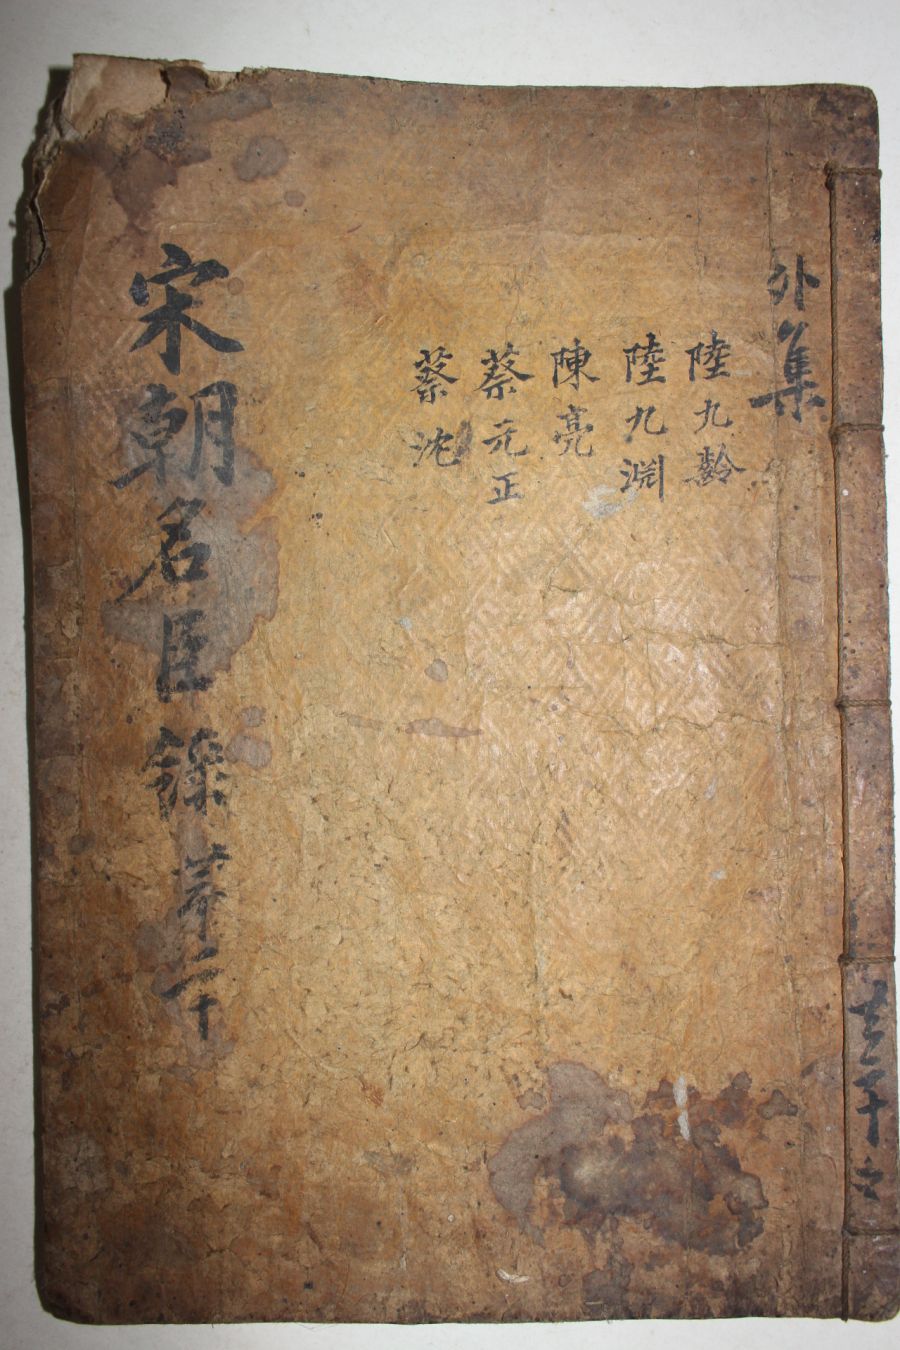 外集
陸九齡
陸九淵
陳亮
蔡元正
蔡沈
宋朝名臣錄 第二十
共二十